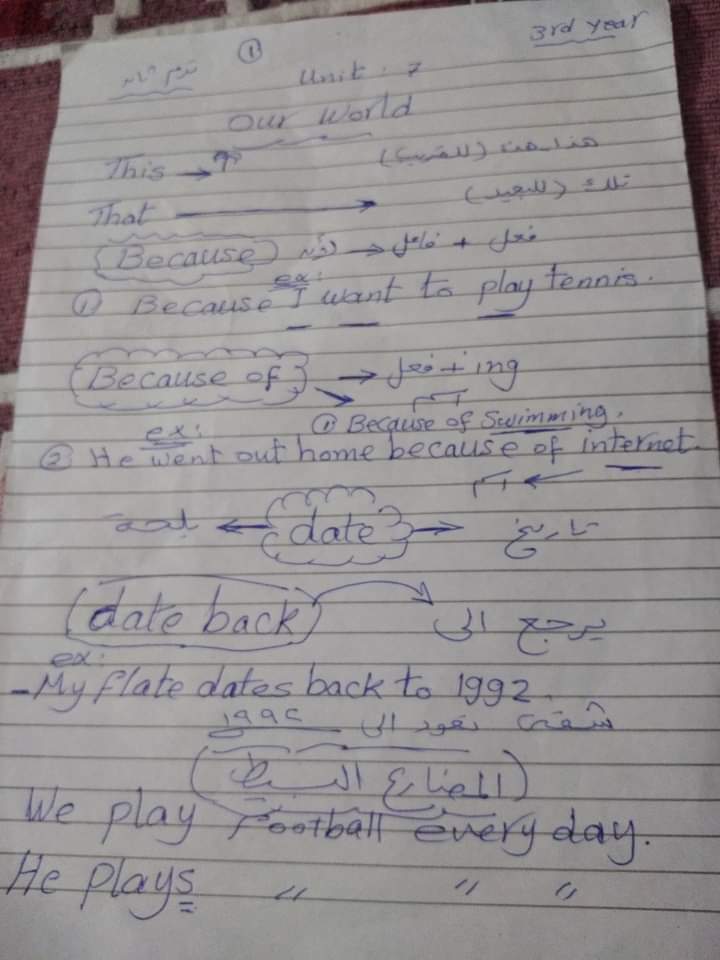 ① 3rd year
ترم ثانى Unit : 7
Our World
This → هذا - هذه (للقريب)
That → تلك (للبعيد)
Because لأن → فاعل + فعل
ex:
① Because I want to play tennis.
Because of → فعل + ing
اسم
ex: ① Because of Swimming.
② He went out home because of internet.
اسم
بلحة ← date → تاريخ
date back يرجع الى
ex:
- My flate dates back to 1992.
شقتى تعود الى ١٩٩٢
(المضارع البسيط)
We play Football every day.
He plays " " "